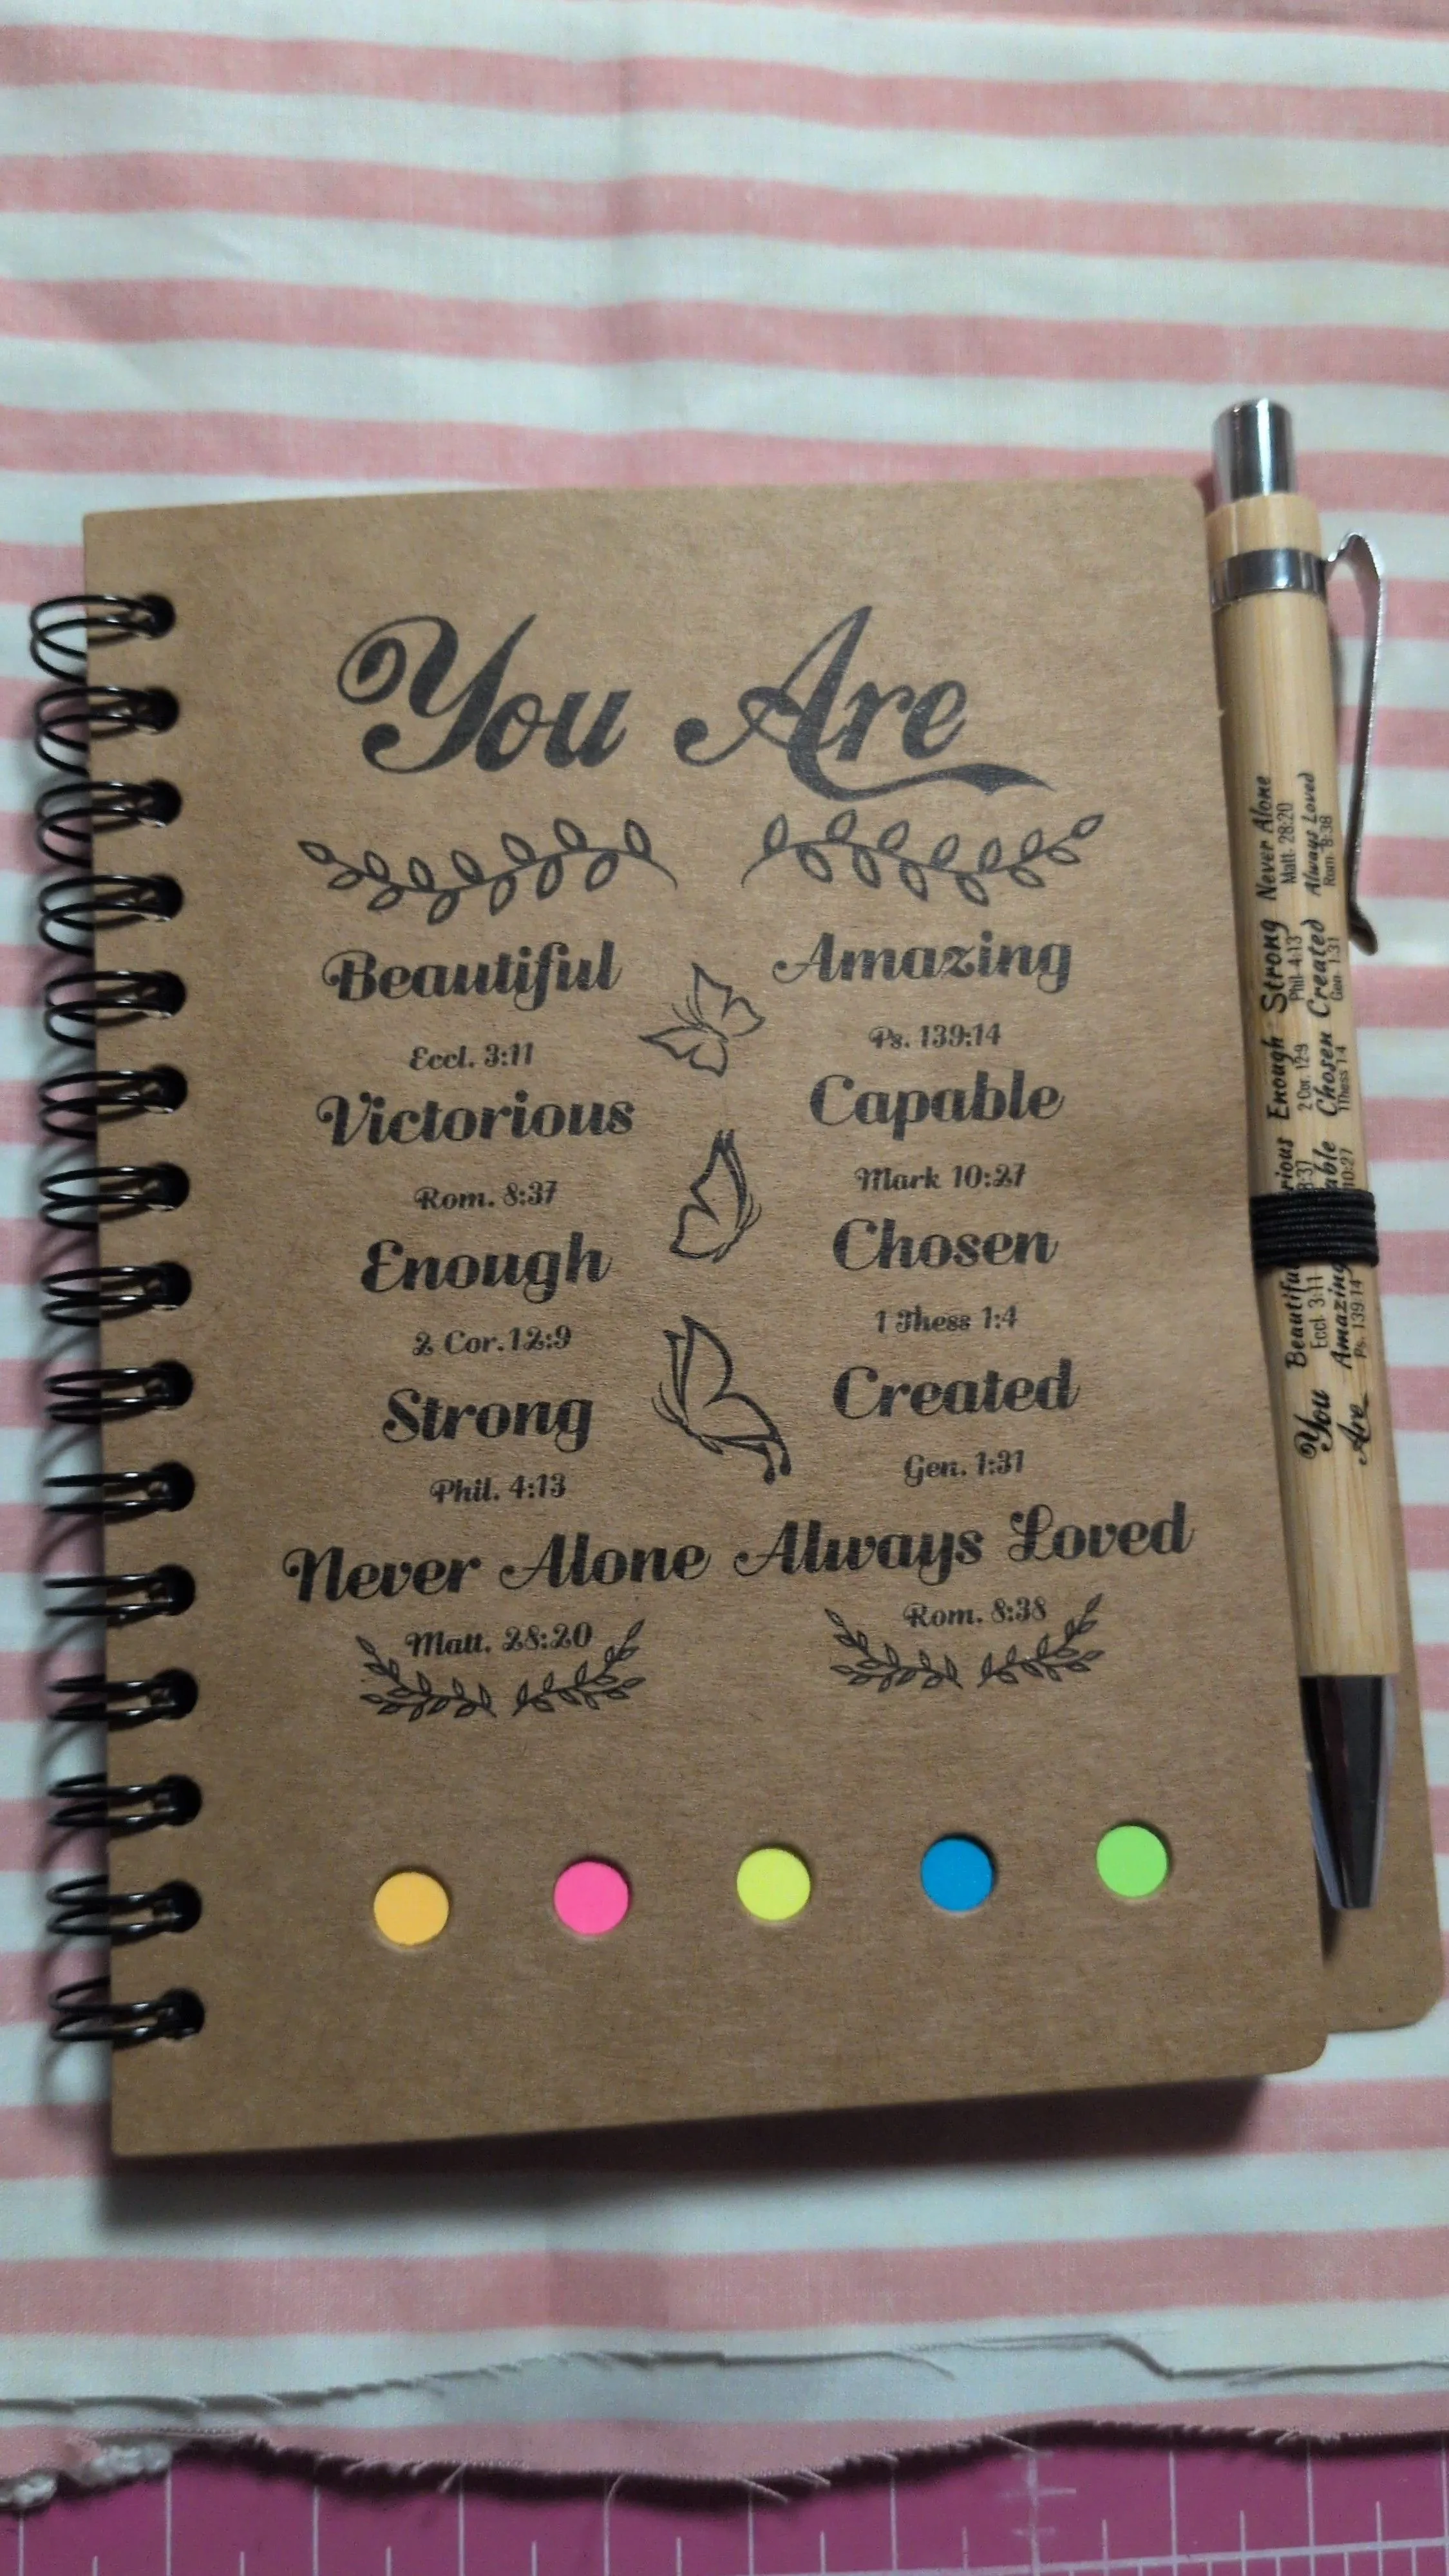 You Are
Beautiful Amazing
Eccl. 3:11 Ps. 139:14
Victorious Capable
Rom. 8:37 Mark 10:27
Enough Chosen
2 Cor. 12:9 1 Thess 1:4
Strong Created
Phil. 4:13 Gen. 1:31
Never Alone Always Loved
Matt. 28:20 Rom. 8:38
You
Are
Beautiful rious Enough Strong Never Alone
Eccl. 3:11 8:37 2 Cor. 12:9 Phil. 4:13 Matt. 28:20
Amazing able Chosen Created Always Loved
Ps. 139:14 10:27 1Thess 1:4 Gen. 1:31 Rom. 8:38